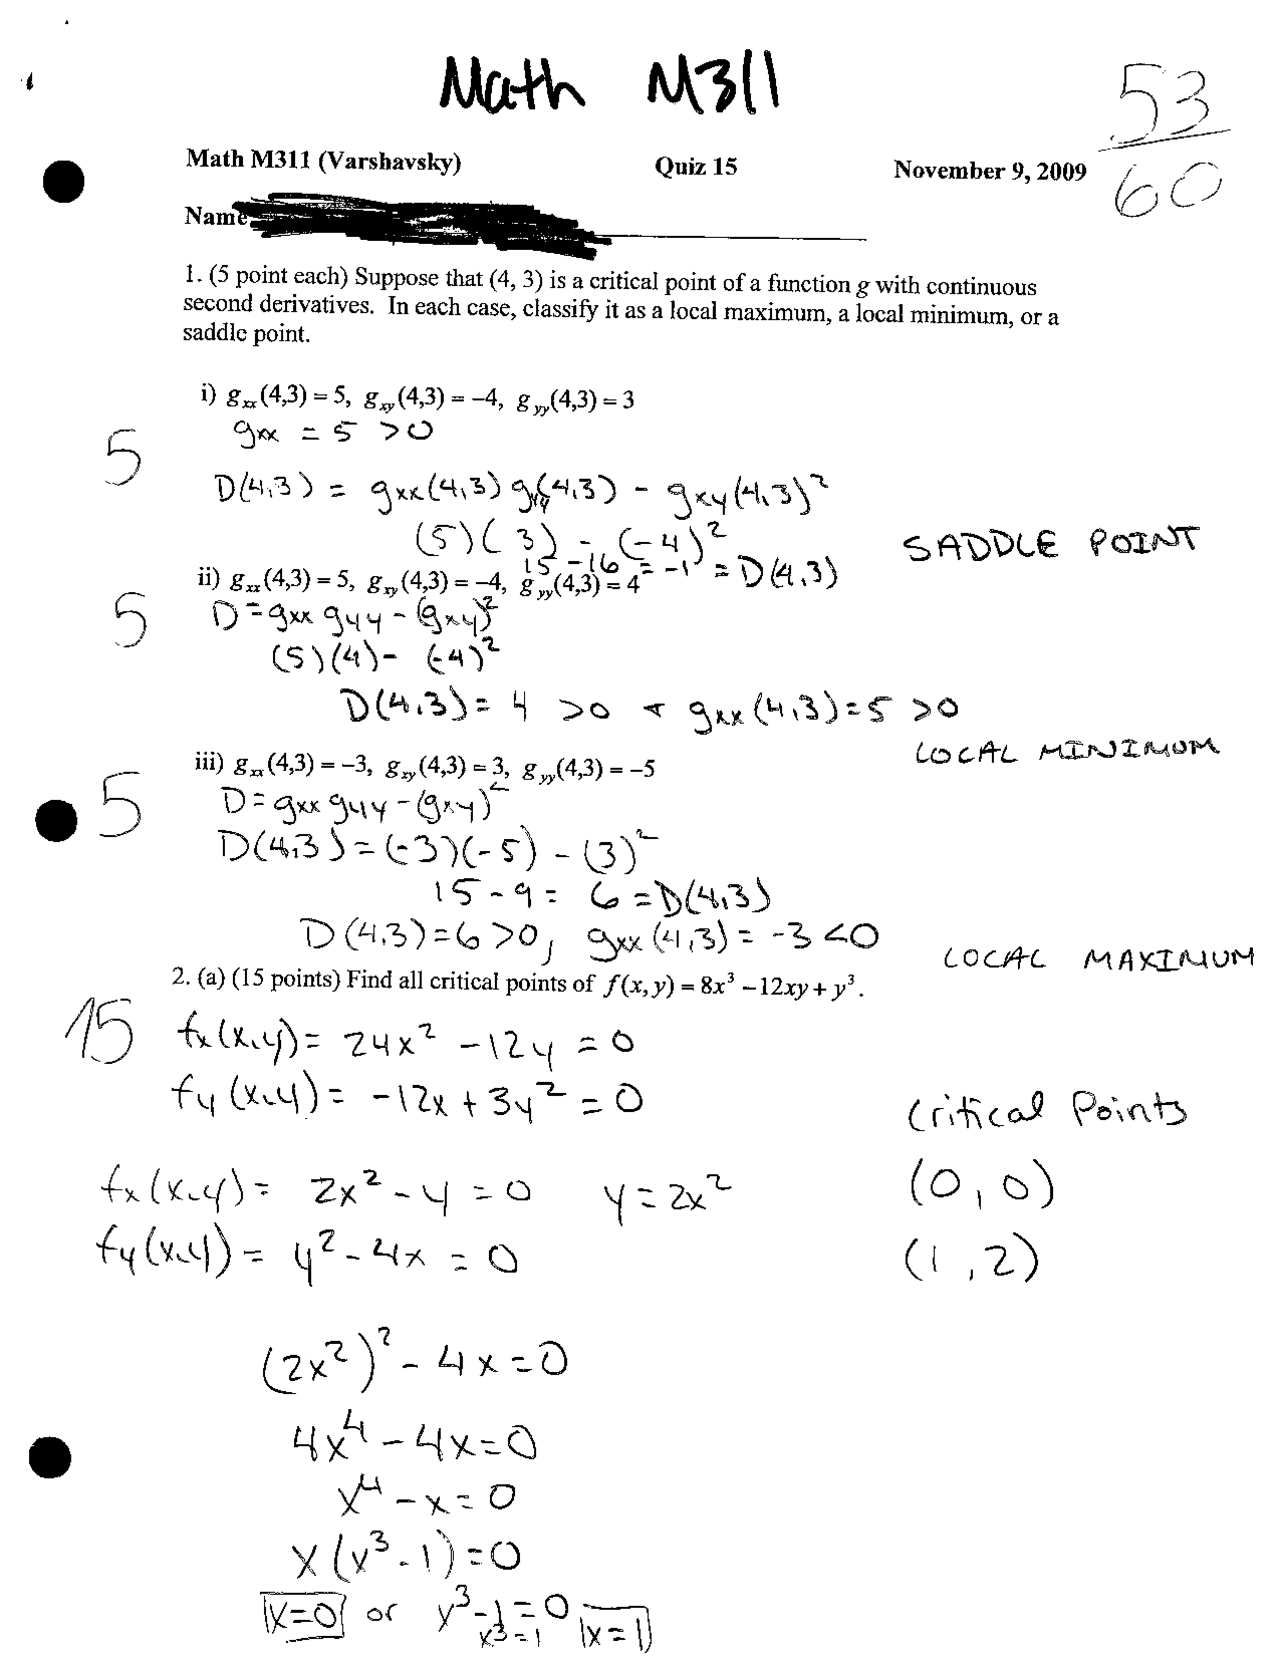 Math M311
53
60
Math M311 (Varshavsky) Quiz 15 November 9, 2009
Name
1. (5 point each) Suppose that (4, 3) is a critical point of a function g with continuous
second derivatives. In each case, classify it as a local maximum, a local minimum, or a
saddle point.
i) g_xx(4,3) = 5, g_xy(4,3) = −4, g_yy(4,3) = 3
gxx = 5 >0
5
D(4,3) = gxx(4,3) gyy(4,3) - gxy(4,3)²
(5)(3) - (-4)²
SADDLE POINT
15 - 16 = -1 = D(4,3)
ii) g_xx(4,3) = 5, g_xy(4,3) = −4, g_yy(4,3) = 4
5
D = gxx gyy - (gxy)²
(5)(4) - (-4)²
D(4,3) = 4 >0 + gxx(4,3) = 5 >0
LOCAL MINIMUM
iii) g_xx(4,3) = −3, g_xy(4,3) = 3, g_yy(4,3) = −5
5
D = gxx gyy - (gxy)²
D(4,3) = (-3)(-5) - (3)²
15 - 9 = 6 = D(4,3)
D(4,3) = 6 >0, gxx(4,3) = -3 <0
LOCAL MAXIMUM
2. (a) (15 points) Find all critical points of f(x, y) = 8x³ − 12xy + y³.
15
fx(x,y) = 24x² - 12y = 0
fy(x,y) = -12x + 3y² = 0
Critical Points
fx(x,y) = 2x² - y = 0 y = 2x²
(0, 0)
fy(x,y) = y² - 4x = 0
(1, 2)
(2x²)² - 4x = 0
4x⁴ - 4x = 0
x⁴ - x = 0
x(x³ - 1) = 0
x=0 or x³ - 1 = 0
x³ = 1 x = 1